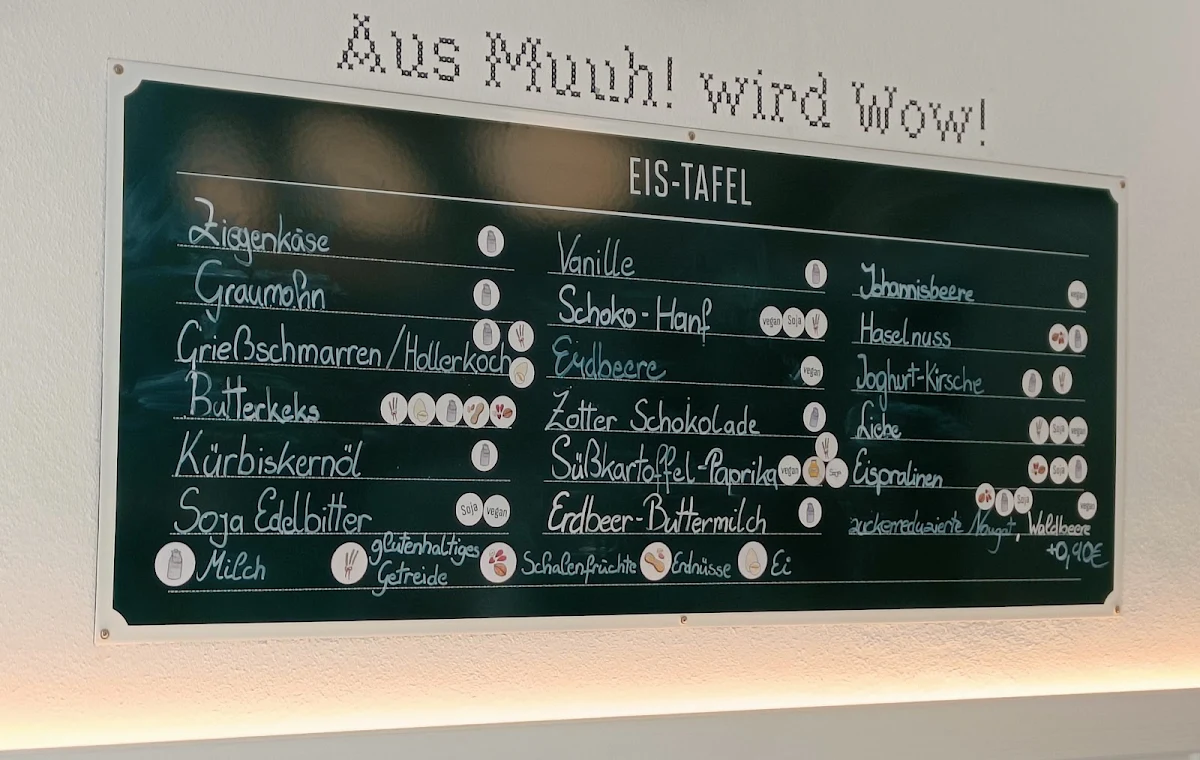 Aus Muuh! wird Wow!
EIS-TAFEL
Ziegenkäse
Graumohn
Grießschmarren/Hollerkoch
Butterkeks
Kürbiskernöl
Soja Edelbitter Soja vegan
Vanille
Schoko-Hanf vegan Soja
Erdbeere vegan
Zotter Schokolade
Süßkartoffel-Paprika vegan Soja
Erdbeer-Buttermilch
Johannisbeere vegan
Haselnuss
Joghurt-Kirsche
Liebe Soja vegan
Eispralinen Soja
Soja vegan
zuckerreduzierte Nougat, Waldbeere
+0,40€
Milch
glutenhaltiges
Getreide
Schalenfrüchte
Erdnüsse
Ei